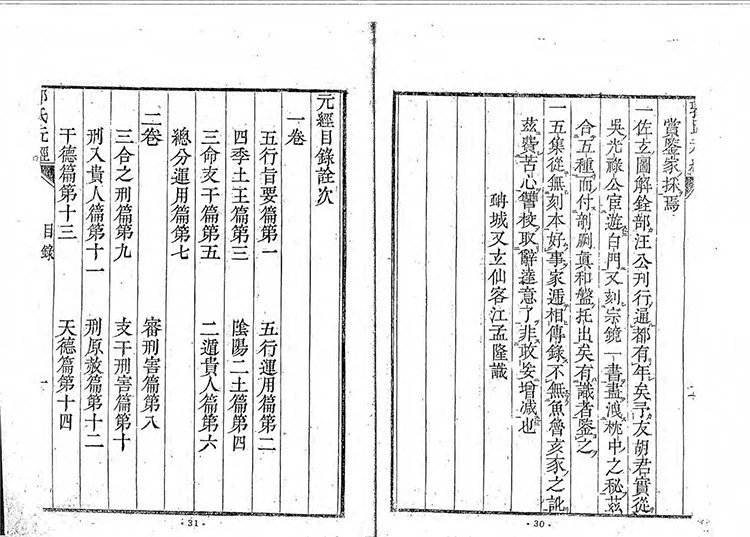 賞鑒家採焉
一佐玄圖解銓部汪公刊行通都有年矣予友胡君實從
吳光祿公宦遊白門又刻宗鏡一書盡洩枕中之秘茲
合五種而付剞劂真和盤托出矣有識者鑒之
一五集從無刻本好事家遞相傳錄不無魚魯亥豕之訛
茲費苦心讐校取辭達意了非敢妄增減也
城又玄仙客江孟隆識
·30·
元經目錄詮次
一卷
五行旨要篇第一 五行運用篇第二
四季土王篇第三 陰陽二土篇第四
三命支干篇第五 二遁貴人篇第六
總分運用篇第七
二卷
審刑害篇第八
三合之刑篇第九 支干刑害篇第十
刑入貴人篇第十一 刑原赦篇第十二
干德篇第十三 天德篇第十四
氏元經 目錄 一
·31·